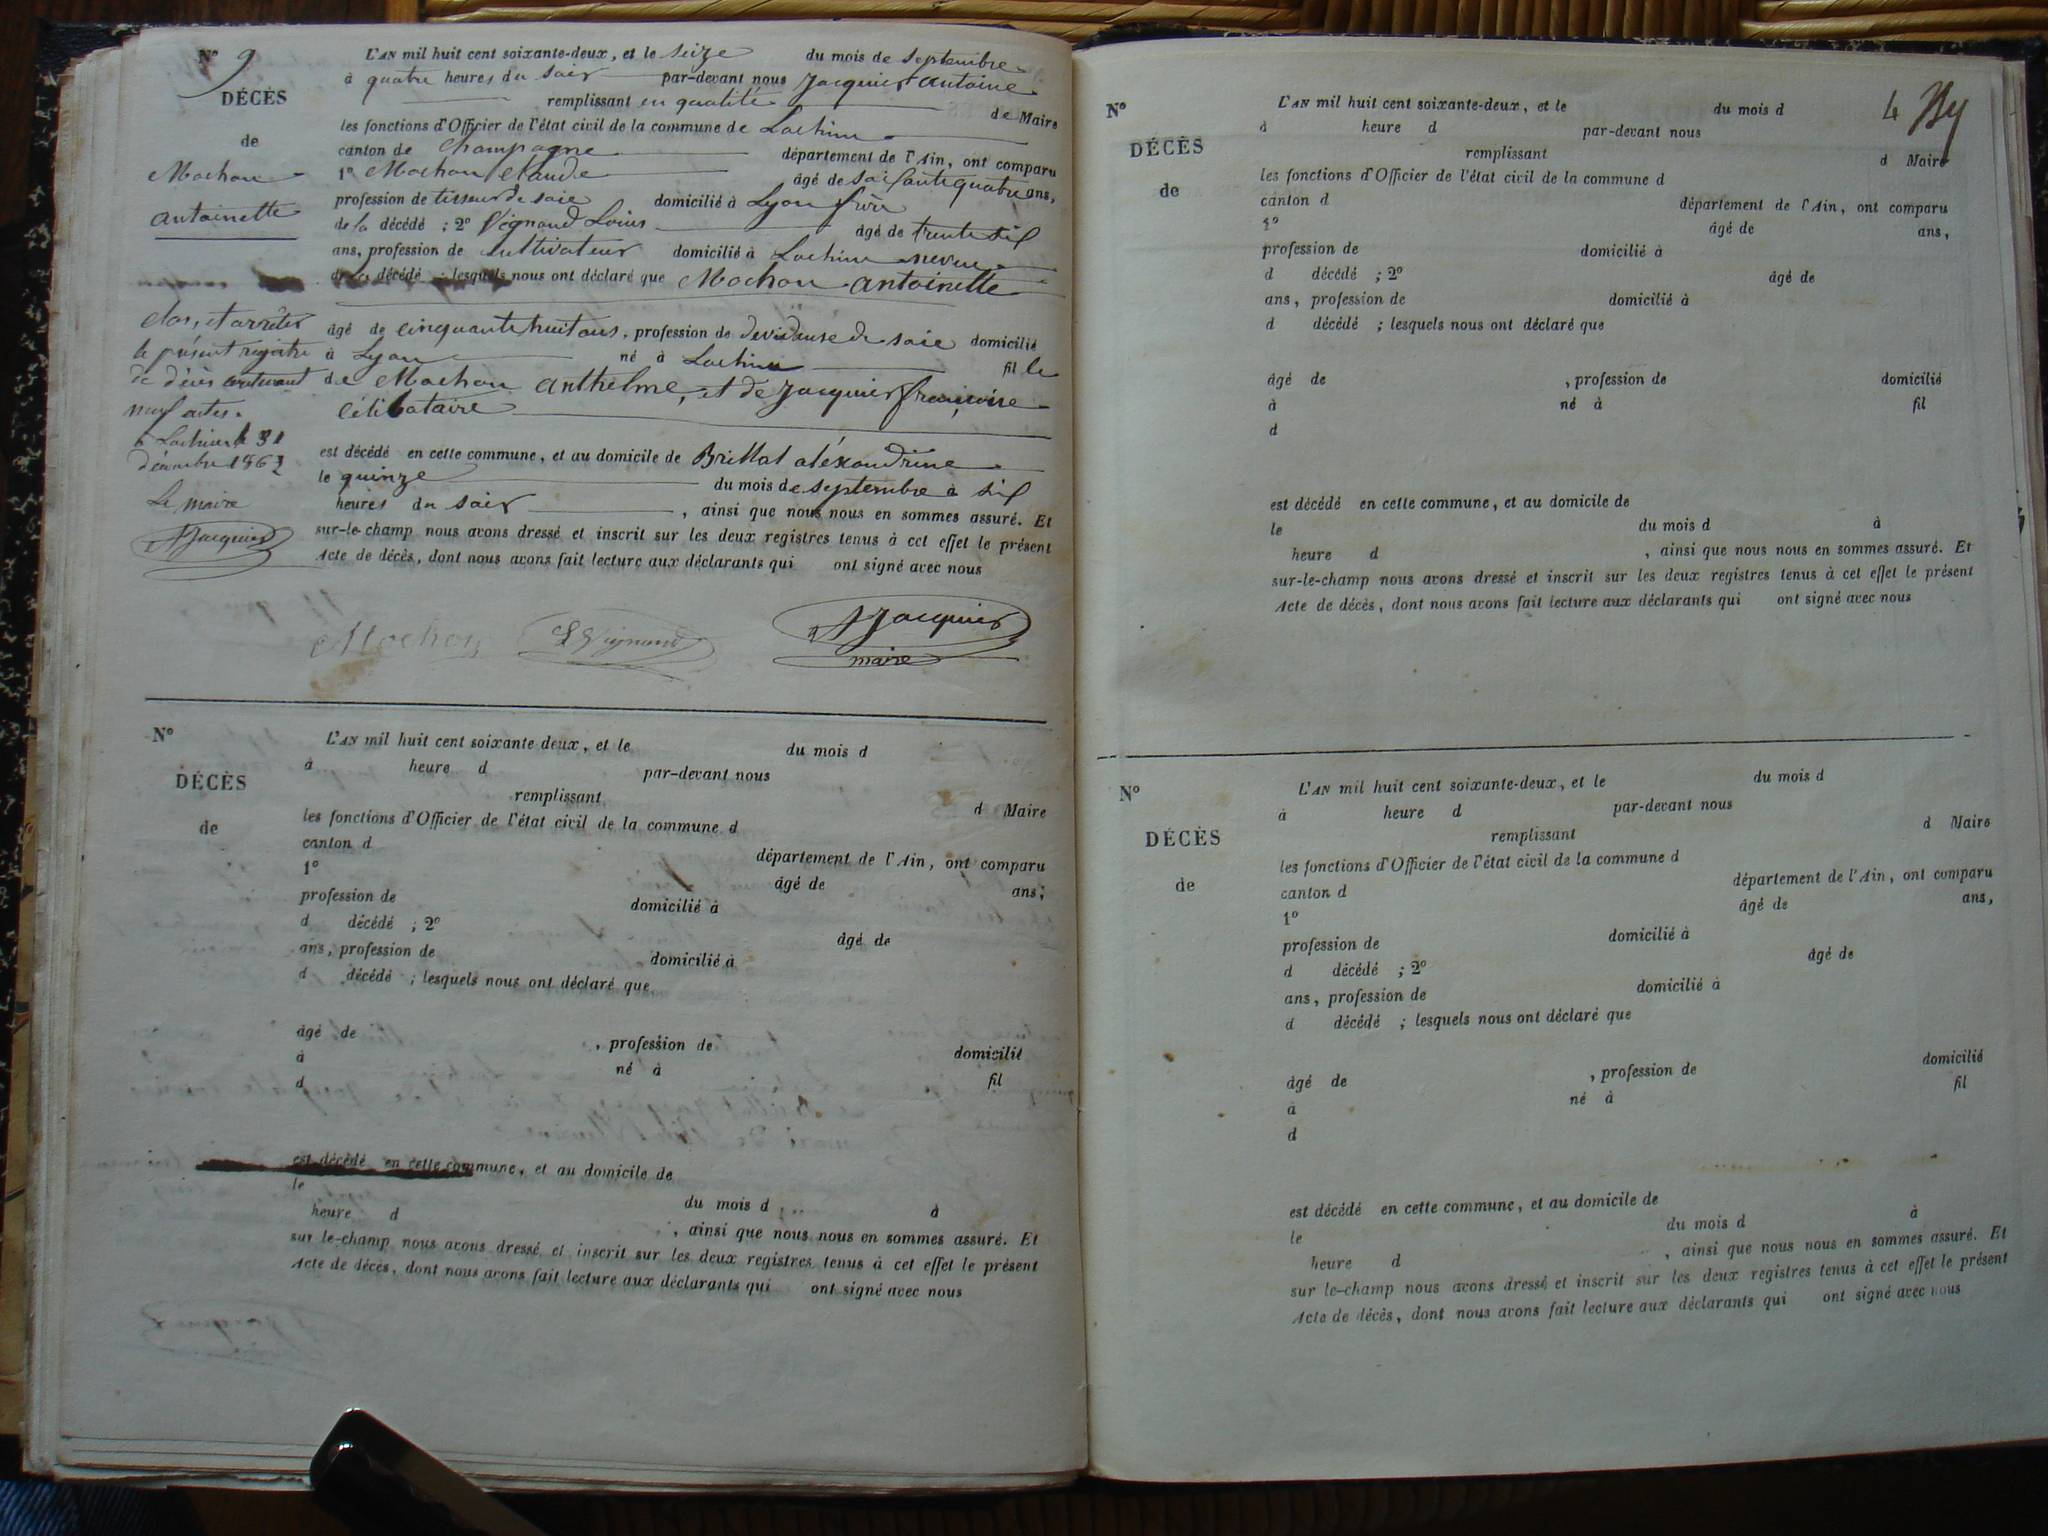 N° 9
DÉCÈS
de
Mochon
antoinette
L'AN mil huit cent soixante-deux, et le seize du mois de septembre
à quatre heures du soir par-devant nous Jacquier antoine
remplissant en qualité de Maire
les fonctions d'Officier de l'état civil de la commune de Lochieu
canton de Champagne département de l'Ain, ont comparu
1° Mochon claude âgé de soisante quatre ans,
profession de tisseur de soie domicilié à Lyon frère
de la décédé ; 2° Vignand Louis âgé de trente six
ans, profession de cultivateur domicilié à Lochieu neveu
de la décédé ; lesquels nous ont déclaré que Mochon antoinette
âgé de cinquante huit ans, profession de devideuse de soie domicilié
à Lyon né à Lochieu fille
de Mochon anthelme, et de Jacquier françoise
célibataire
est décédé en cette commune, et au domicile de Brillat aléxandrine
le quinze du mois de septembre à six
heures du soir , ainsi que nous nous en sommes assuré. Et
sur-le-champ nous avons dressé et inscrit sur les deux registres tenus à cet effet le présent
Acte de décès, dont nous avons fait lecture aux déclarants qui ont signé avec nous
Mochon L Vignand A Jacquier
maire
clos, et arrêter
le présent registre
de décès contenant
neuf actes.
à Lochieu le 31
décembre 1862
Le maire
A Jacquier
N°
DÉCÈS
de
L'AN mil huit cent soixante deux, et le du mois d
à heure d par-devant nous
remplissant d Maire
les fonctions d'Officier de l'état civil de la commune d
canton d département de l'Ain, ont comparu
1° âgé de ans;
profession de domicilié à
d décédé ; 2° âgé de
ans, profession de domicilié à
d décédé ; lesquels nous ont déclaré que
âgé de , profession de domicilié
à né à fil
d
est décédé en cette commune, et au domicile de
le du mois d à
heure d , ainsi que nous nous en sommes assuré. Et
sur le-champ nous avons dressé et inscrit sur les deux registres tenus à cet effet le présent
Acte de décès, dont nous avons fait lecture aux déclarants qui ont signé avec nous
4
N°
DÉCÈS
de
L'AN mil huit cent soixante-deux, et le du mois d
à heure d par-devant nous
remplissant d Maire
les fonctions d'Officier de l'état civil de la commune d
canton d département de l'Ain, ont comparu
1° âgé de ans,
profession de domicilié à
d décédé ; 2° âgé de
ans, profession de domicilié à
d décédé ; lesquels nous ont déclaré que
âgé de , profession de domicilié
à né à fil
d
est décédé en cette commune, et au domicile de
le du mois d à
heure d , ainsi que nous nous en sommes assuré. Et
sur-le-champ nous avons dressé et inscrit sur les deux registres tenus à cet effet le présent
Acte de décès, dont nous avons fait lecture aux déclarants qui ont signé avec nous
N°
DÉCÈS
de
L'AN mil huit cent soixante-deux, et le du mois d
à heure d par-devant nous
remplissant d Maire
les fonctions d'Officier de l'état civil de la commune d
canton d département de l'Ain, ont comparu
1° âgé de ans,
profession de domicilié à
d décédé ; 2° âgé de
ans, profession de domicilié à
d décédé ; lesquels nous ont déclaré que
âgé de , profession de domicilié
à né à fil
d
est décédé en cette commune, et au domicile de
le du mois d à
heure d , ainsi que nous nous en sommes assuré. Et
sur le-champ nous avons dressé et inscrit sur les deux registres tenus à cet effet le présent
Acte de décès, dont nous avons fait lecture aux déclarants qui ont signé avec nous